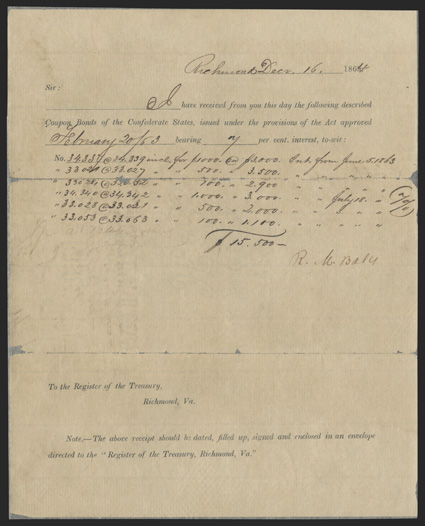 Richmond Decr. 16. 186
Sir:
I have received from you this day the following described
Coupon Bonds of the Confederate States, issued under the provisions of the Act approved
February 20/63 bearing 7 per cent. interest, to-wit:
No. 34.337 @ 34.339 incl. for $1000. @ $3.000. Int. from June 5. 1863
" 33.027 " " 500. " 3.500.
" " " 100. " 2.900 " " "
" 34.340 @ 34.342 " " 1.000 " 3.000 " " July 18. "
" 33.028 @ " " 500. " 2.000. " " " "
" 33.053 @ 33.063 " " 100. " 1.100. " " " "
$ 15.500—
R. M.
To the Register of the Treasury,
Richmond, Va.
Note.—The above receipt should be dated, filled up, signed and enclosed in an envelope
directed to the "Register of the Treasury, Richmond, Va."